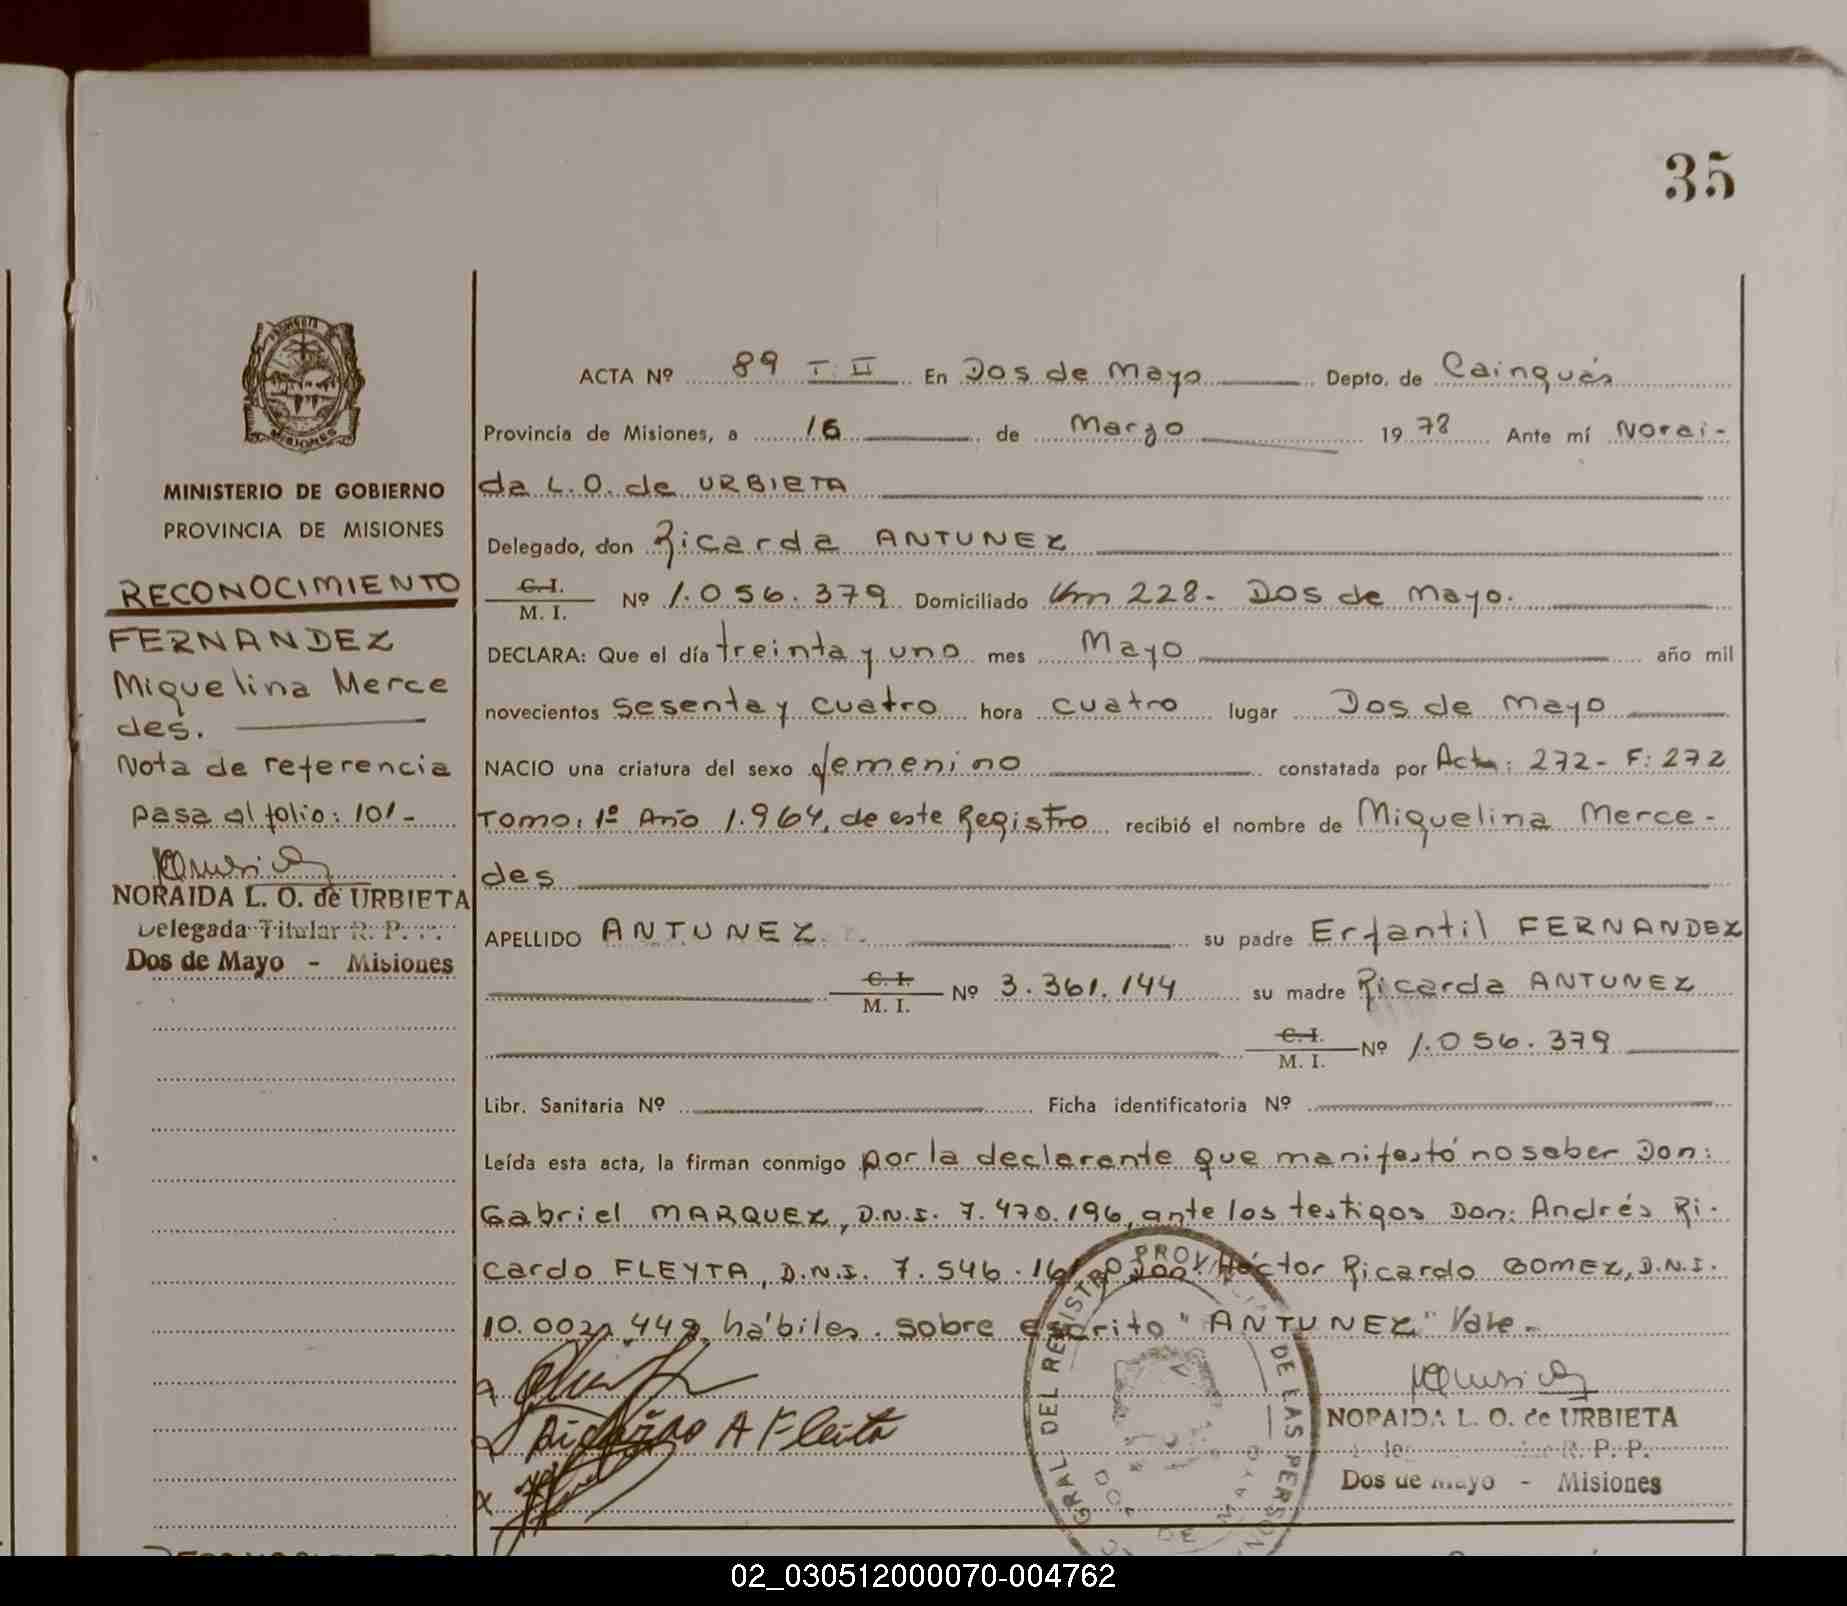 35
MISIONES
MINISTERIO DE GOBIERNO
PROVINCIA DE MISIONES
RECONOCIMIENTO
FERNANDEZ
Miquelina Merce
des.
Nota de referencia
pasa al folio: 101-
NORAIDA L. O. de URBIETA
Delegada Titular R. P. P.
Dos de Mayo - Misiones
ACTA Nº 89 T. II En Dos de Mayo Depto. de Cainguás
Provincia de Misiones, a 16 de Marzo 1978 Ante mí Norai-
da L. O. de URBIETA
Delegado, don Ricarda ANTUNEZ
C. I. / M. I. Nº 1.056.379 Domiciliado Km 228- Dos de Mayo.
DECLARA: Que el día treinta y uno mes Mayo año mil
novecientos sesenta y cuatro hora cuatro lugar Dos de Mayo
NACIO una criatura del sexo femenino constatada por Acta: 272- F: 272
Tomo: 1º Año 1.964, de este Registro recibió el nombre de Miquelina Merce-
des
APELLIDO ANTUNEZ su padre Erfantil FERNANDEZ
C. I. / M. I. Nº 3.361.144 su madre Ricarda ANTUNEZ
C. I. / M. I. Nº 1.056.379
Libr. Sanitaria Nº Ficha identificatoria Nº
Leída esta acta, la firman conmigo por la declarante que manifestó no saber Don:
Gabriel MARQUEZ, D.N.I. 7.470.196, ante los testigos Don: Andrés Ri-
cardo FLEYTA, D.N.I. 7.546.161 Héctor Ricardo GOMEZ, D.N.I.
hábiles. sobre escrito "ANTUNEZ" Vale.
Ricardo A Fleita
GRAL. DEL REGISTRO PROVINCIAL DE LAS PERSON
NORAIDA L. O. de URBIETA
R. P. P.
Dos de Mayo - Misiones
02_030512000070-004762